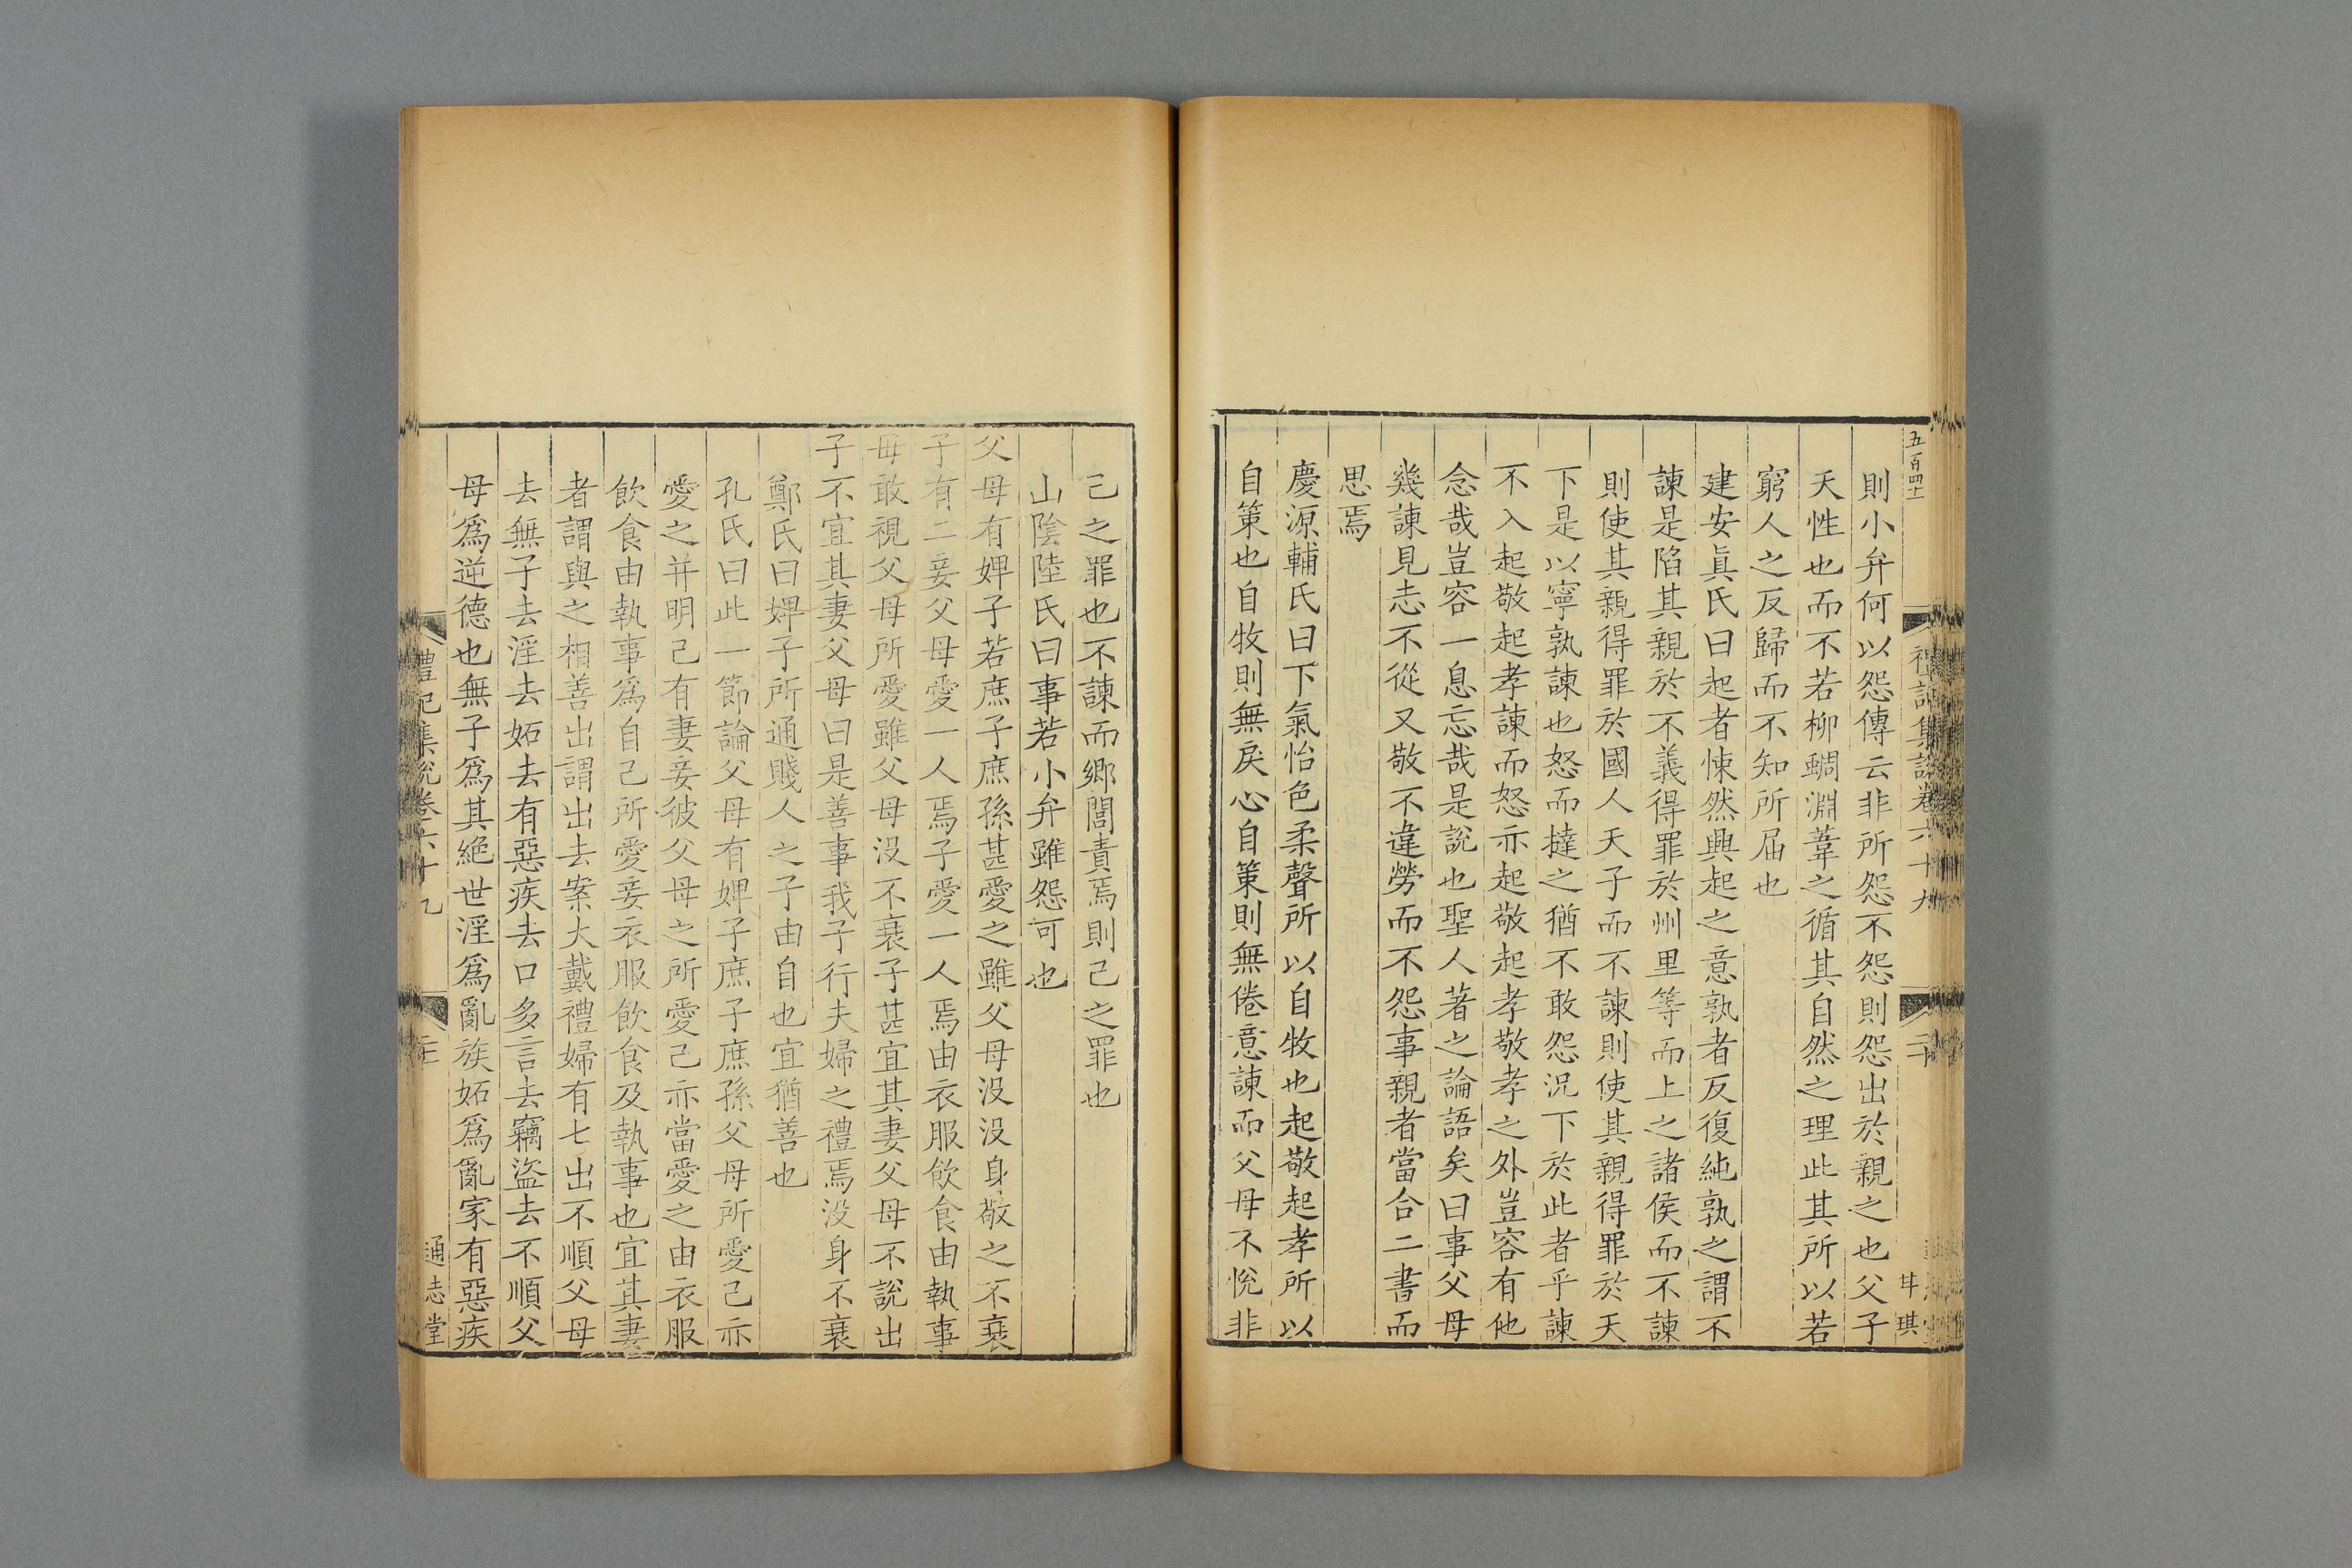 五百四十
禮記集說卷六十九
二十
甘琪
則小弁何以怨傳云非所怨不怨則怨出於親之也父子
天性也而不若柳蜩淵葦之循其自然之理此其所以若
窮人之反歸而不知所屆也
建安眞氏曰起者悚然興起之意孰者反復純孰之謂不
諫是陷其親於不義得罪於州里等而上之諸侯而不諫
則使其親得罪於國人天子而不諫則使其親得罪於天
下是以寧孰諫也怒而撻之猶不敢怨況下於此者乎諫
不入起敬起孝諫而怒亦起敬起孝敬孝之外豈容有他
念哉豈容一息忘哉是說也聖人著之論語矣曰事父母
幾諫見志不從又敬不違勞而不怨事親者當合二書而
思焉
慶源輔氏曰下氣怡色柔聲所以自牧也起敬起孝所以
自策也自牧則無戾心自策則無倦意諫而父母不悅非
己之罪也不諫而鄉閭責焉則己之罪也
山陰陸氏曰事若小弁雖怨可也
父母有婢子若庶子庶孫甚愛之雖父母没没身敬之不衰
子有二妾父母愛一人焉子愛一人焉由衣服飲食由執事
毋敢視父母所愛雖父母没不衰子甚宜其妻父母不說出
子不宜其妻父母曰是善事我子行夫婦之禮焉没身不衰
鄭氏曰婢子所通賤人之子由自也宜猶善也
孔氏曰此一節論父母有婢子庶子庶孫父母所愛己亦
愛之并明己有妻妾彼父母之所愛己亦當愛之由衣服
飲食由執事爲自己所愛妾衣服飲食及執事也宜其妻
者謂與之相善出謂出去案大戴禮婦有七出不順父母
去無子去淫去妬去有惡疾去口多言去竊盜去不順父
母爲逆德也無子爲其絶世淫爲亂族妬爲亂家有惡疾
禮記集說卷六十九
通志堂